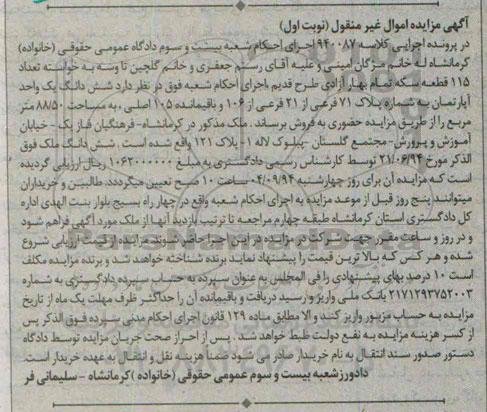 آگهی مزایده اموال غیر منقول (نوبت اول)
در پرونده اجرایی کلاسه ۹۴۰۰۸۷ اجرای احکام شعبه بیست و سوم دادگاه عمومی حقوقی (خانواده)
کرمانشاه له خانم مژگان امینی و علیه آقای رسم جعفری و خانم گلچین تا وسه به خواسته تعداد
۱۱۵ قطعه سکه تمام بهار آزادی طرح قدیم ،اجرای احکام شعبه فوق در نظر دارد شش دانگ یک واحد
آپارتمان به شماره پلاک ۷۱ فرعی از ۲۱ فرعی از ۱۰۶ و باقیمانده ۱۰۵ اصلی ، به مساحت ۸۸/۵۰ متر
مربع را از طریق مزایده حضوری به فروش برساند . ملک مذکور در کرمانشاه- فرهنگیان فاز یک - خیابان
آموزش و پرورش-مجتمع گلستان -بلوک لاله ۱- پلاک ۱۲۱ واقع شده است . شش دانگ ملک فوق
الذکر مورخ ۲۱/۰۶/۹۴ توسط کارشناس رسمی دادگستری به مبلغ ۱۰۶۲۰۰۰۰۰۰ ریال ارزیابی گردیده
است که مزایده آن برای روز چهارشنبه ۰۴/۰۹/۹۴ ساعت ۱۰ صبح تعیین میگردد. طالبین و خریداران
میتوانند پنج روز قبل از موعد مزایده به اجرای احکام شعبه واقع در چهار راه بسیج بلوار بنت الهدی اداره
کل دادگستری استان کرمانشاه طبقه چهارم مراجعه تا ترتیب بازدید آنها از ملک مورد آگهی فراهم شود
و در روز و ساعت مقرر جهت شرکت در مزایده در این اجرا حاضر شوند. مزایده از قیمت ارزیابی شروع
شده و هر کس که بالا ترین قیمت را پیشنهاد نماید برنده شناخته خواهد شد و برنده مزایده مکلف
است ۱۰ درصد بهای پیشنهادی را فی المجلس به عنوان سپرده به حساب سپرده دادگستری به شماره
۲۱۷۱۲۹۳۷۵۲۰۰۳ بانک ملی واریز و رسید دریافت و باقیمانده آن را حداکثر ظرف مهلت یک ماه از تاریخ
مزایده به حساب مزبور واریز کند و الا مطابق ماده ۱۲۹ قانون اجرای احکام مدنی سپرده فوق الذکر پس
از کسر هزینه مزایده به نفع دولت ظبط خواهد شد . پس از احراز صحت جریان مزایده توسط دادگاه
دستور صدور سند انتقال به نام خریدار صادر می شود ضمنا هزینه نقل و انتقال به عهده خریدار است.
دادورز شعبه بیست و سوم عمومی حقوقی (خانواده )کرمانشاه - سلیمانی فر